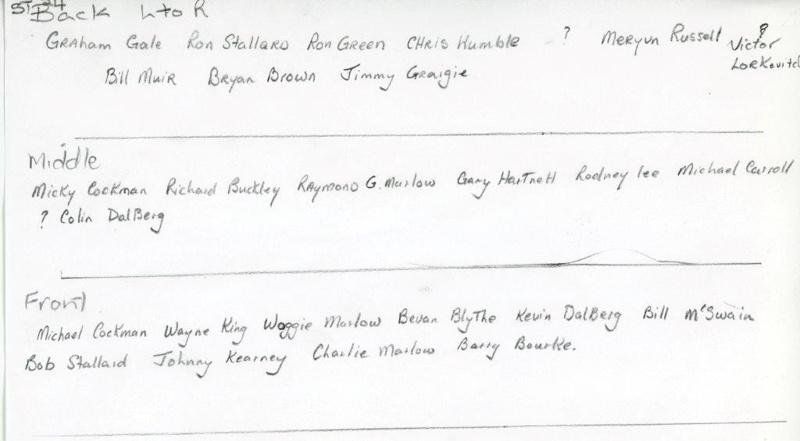 Back L to R
Graham Gale Ron Stallard Ron Green Chris Humble ? Mervyn Russell ? Victor Lorkovitch
Bill Muir Bryan Brown Jimmy Graigie
Middle
Micky Cockman Richard Buckley Raymond G. Marlow Gary Hartnett Rodney Lee Michael Carroll
? Colin DalBerg
Front
Michael Cockman Wayne King Woggie Marlow Bevan Blythe Kevin DalBerg Bill McSwain
Bob Stallard Johnny Kearney Charlie Marlow Barry Bourke.